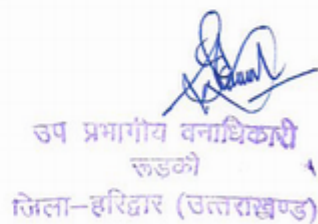 उप प्रभागीय वनाधिकारी
रूडकी
जिला-हरिद्वार (उत्तराखण्ड)